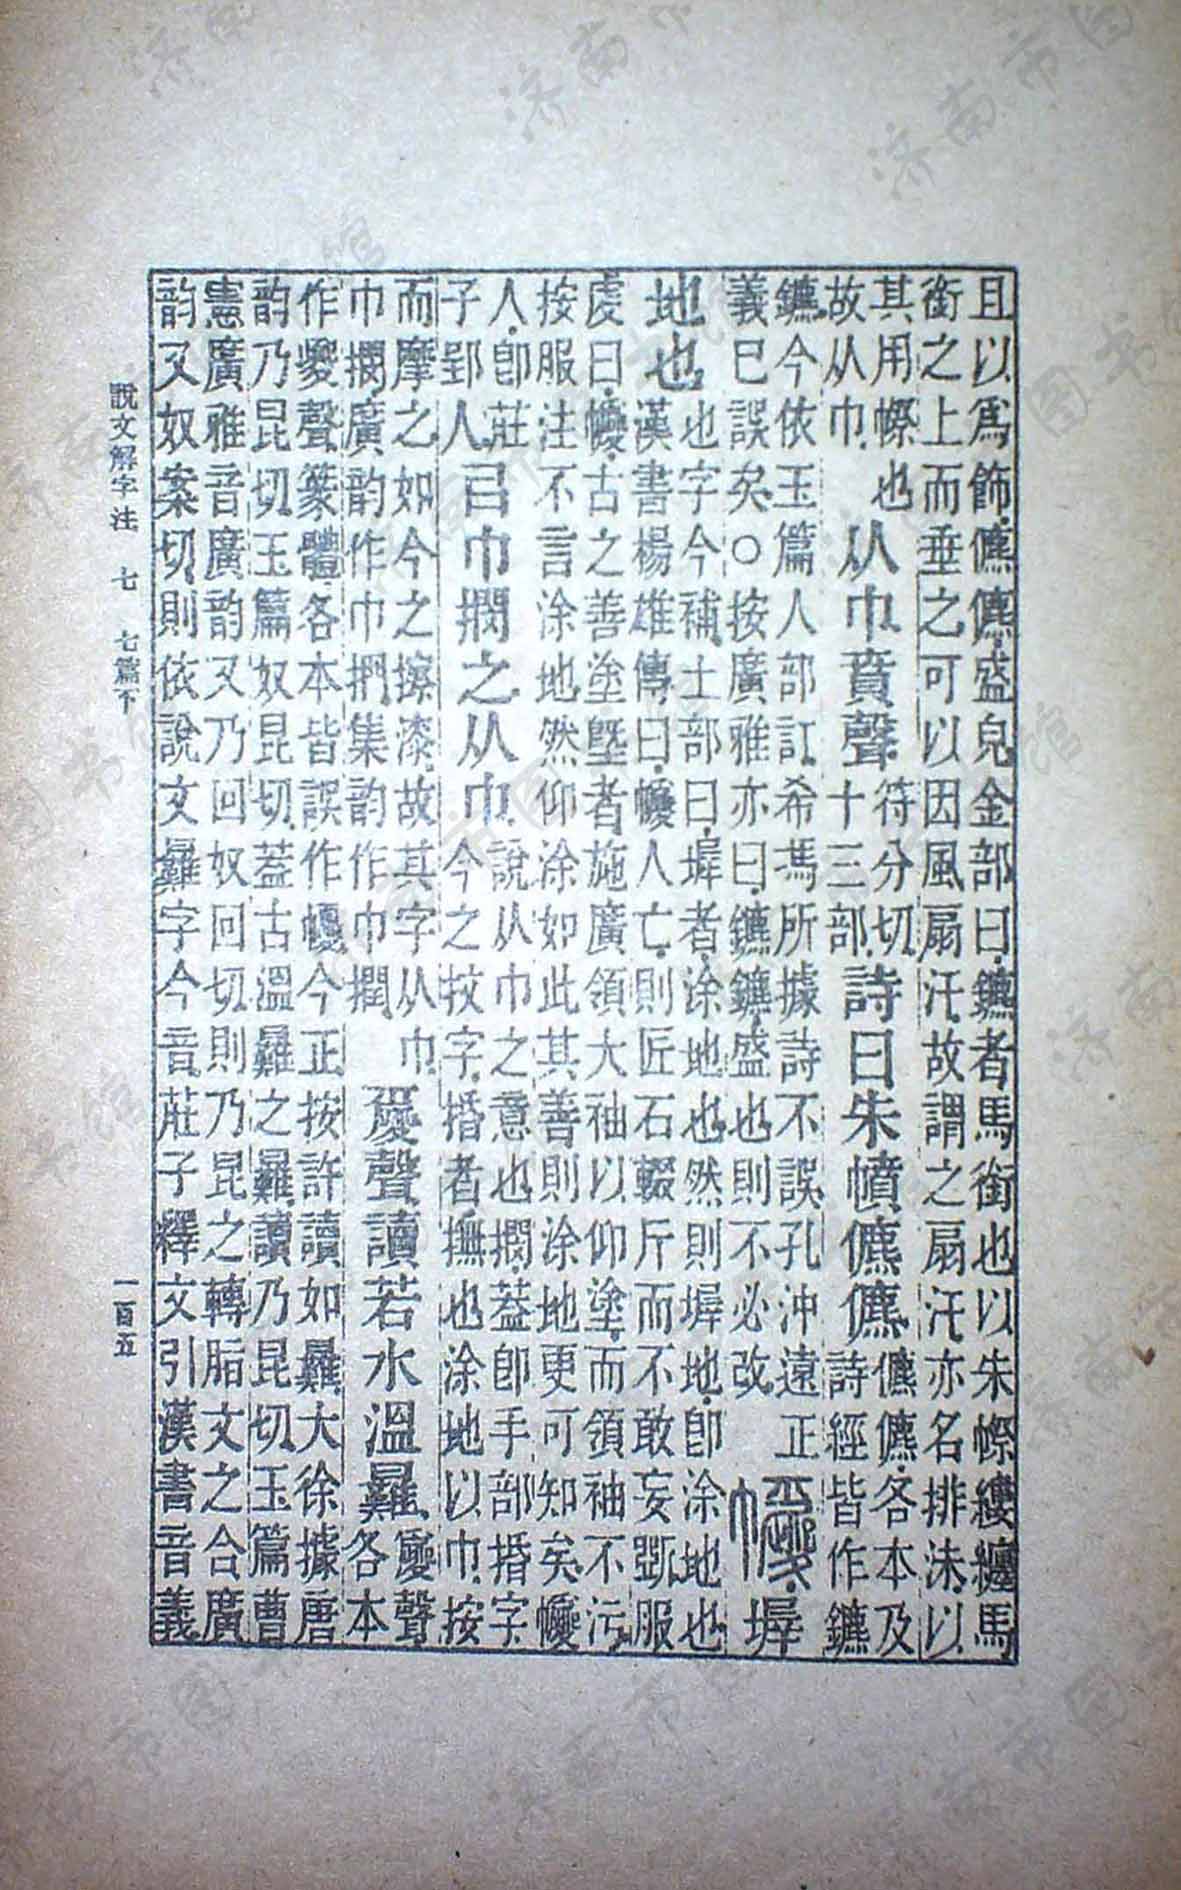 且以爲飾儦儦盛皃金部曰鑣者馬銜也以朱幓縷纏馬
銜之上而垂之可以因風扇汗故謂之扇汗亦名排沬以
其用幓也
故从巾
从巾賁聲
符分切
十三部
詩曰朱幩儦儦
儦儦各本及
詩經皆作鑣
鑣今依玉篇人部訂希馮所據詩不誤孔沖遠正
義已誤矣○按廣雅亦曰鑣鑣盛也則不必改
墀
地也
也字今補土部曰墀者涂地也然則墀地卽涂地也
漢書楊雄傳曰㠠人亡則匠石輟斤而不敢妄斲服
虔曰㠠古之善塗塈者施廣領大袖以仰塗而領袖不污
按服注不言涂地然仰涂如此其善則涂地更可知矣㠠
人卽莊
子郢人
㠯巾撋之从巾
說从巾之意也撋蓋卽手部捪字
今之抆字捪者撫也涂地以巾按
而摩之如今之擦漆故其字从巾
巾撋廣韵作巾捫集韵作巾撋
夒聲讀若水溫㬮
夒聲各本
作夒聲篆體各本皆誤作㠠今正按許讀如㬮大徐據唐
韵乃昆切玉篇奴昆切蓋古溫㬮之㬮讀乃昆切玉篇曹
憲廣雅音廣韵又乃回奴回切則乃昆之轉脂文之合廣
韵又奴案切則依說文㬮字今音莊子釋文引漢書音義
說文解字注 七 七篇下
一百五
济南市图书馆